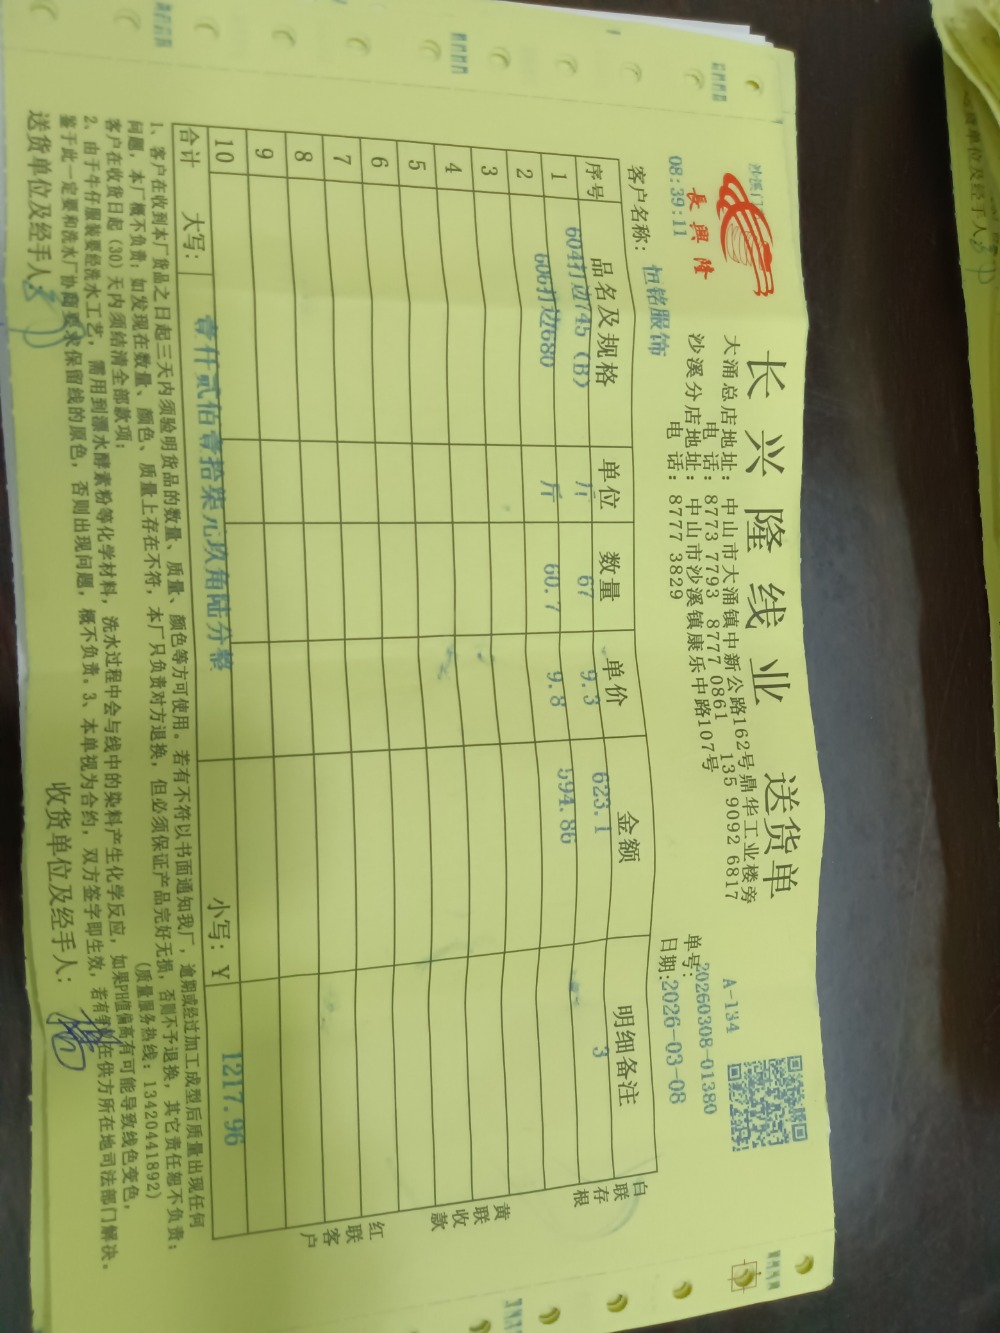 沙溪门
08:39:11
長興隆
长兴隆线业 送货单
大涌总店地址：中山市大涌镇中新公路162号鼎华工业楼旁
电 话：8773 7793 8777 0861 135 9092 6817
沙溪分店地址：中山市沙溪镇康乐中路107号
电 话：8777 3829
A-134
单号：20260308-01380
日期：2026-03-08
客户名称：恒铭服饰
序号 品名及规格 单位 数量 单价 金额 明细备注
1 604打边745（B） 斤 67 9.3 623.1 3
2 606打边7680 斤 60.7 9.8 594.86
3
4
5
6
7
8
9
10
合计 大写：壹仟贰佰壹拾柒元玖角陆分整 小写：￥ 1217.96
白联存根
黄联收款
红联客户
1、客户在收到本厂货品之日起三天内须验明货品的数量、质量、颜色等方可使用。若有不符以书面通知我厂，逾期或经过加工成型后质量出现任何
问题，本厂概不负责；如发现在数量、颜色、质量上存在不符，本厂只负责对方退换，但必须保证产品完好无损，否则不予退换，其它责任恕不负责；
客户在收货日起（30）天内须结清全部款项；
（质量服务热线：13420441892）
2、由于牛仔服装要经洗水工艺，需用到漂水酵素粉等化学材料，洗水过程中会与线中的染料产生化学反应，如果PH值偏高有可能导致线色变色，
鉴于此一定要和洗水厂协商要求保留线的原色，否则出现问题，概不负责。3、本单视为合约，双方签字即生效，若有争执在供方所在地司法部门解决。
送货单位及经手人：
收货单位及经手人：